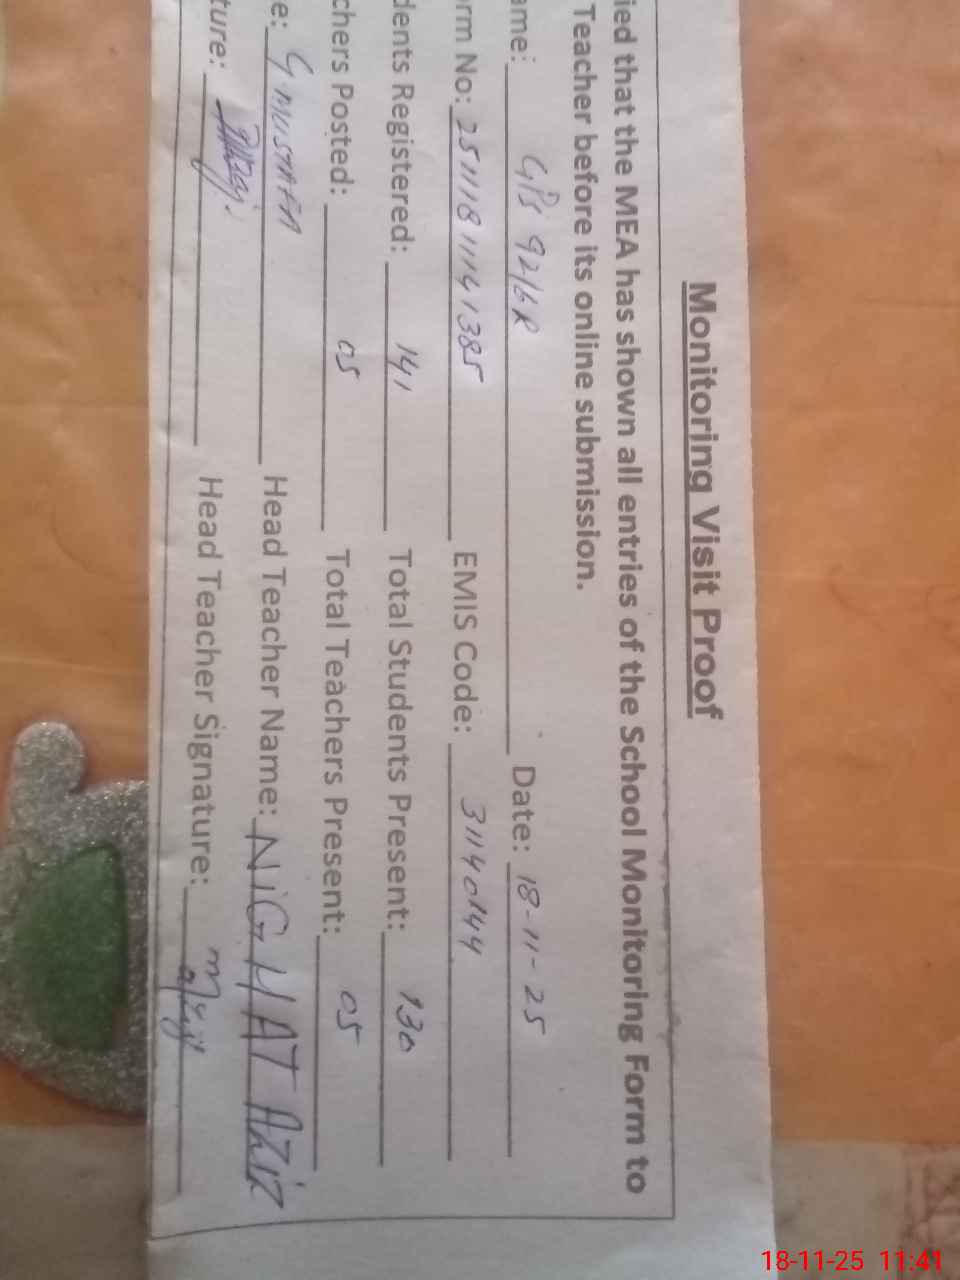 Monitoring Visit Proof
ied that the MEA has shown all entries of the School Monitoring Form to
Teacher before its online submission.
ame: GPS 92/6R Date: 18-11-25
orm No: 25111811141385 EMIS Code: 31140144
dents Registered: 141 Total Students Present: 130
chers Posted: 05 Total Teachers Present: 05
e: G MUSTAFA Head Teacher Name: NiGHAT AZiZ
ture: Head Teacher Signature:
18-11-25 11:41